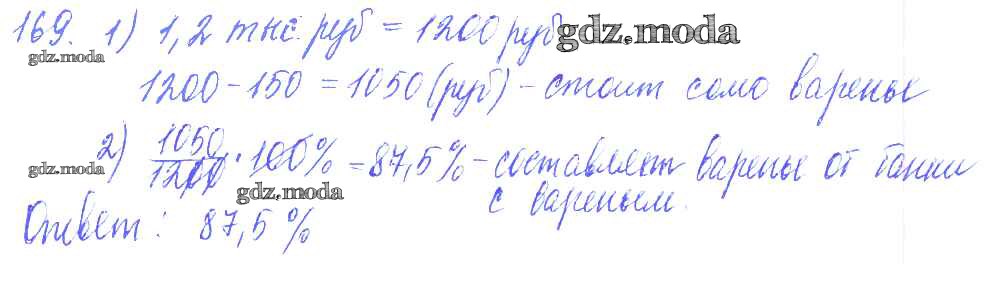 169. 1) 1,2 тыс. руб = 1200 руб gdz.moda
gdz.moda
1200 - 150 = 1050 (руб) - стоит само варенье
2) 1050/1200 · 100% = 87,5% - составляет варенье от банки
gdz.moda
gdz.moda
с вареньем.
Ответ: 87,5%